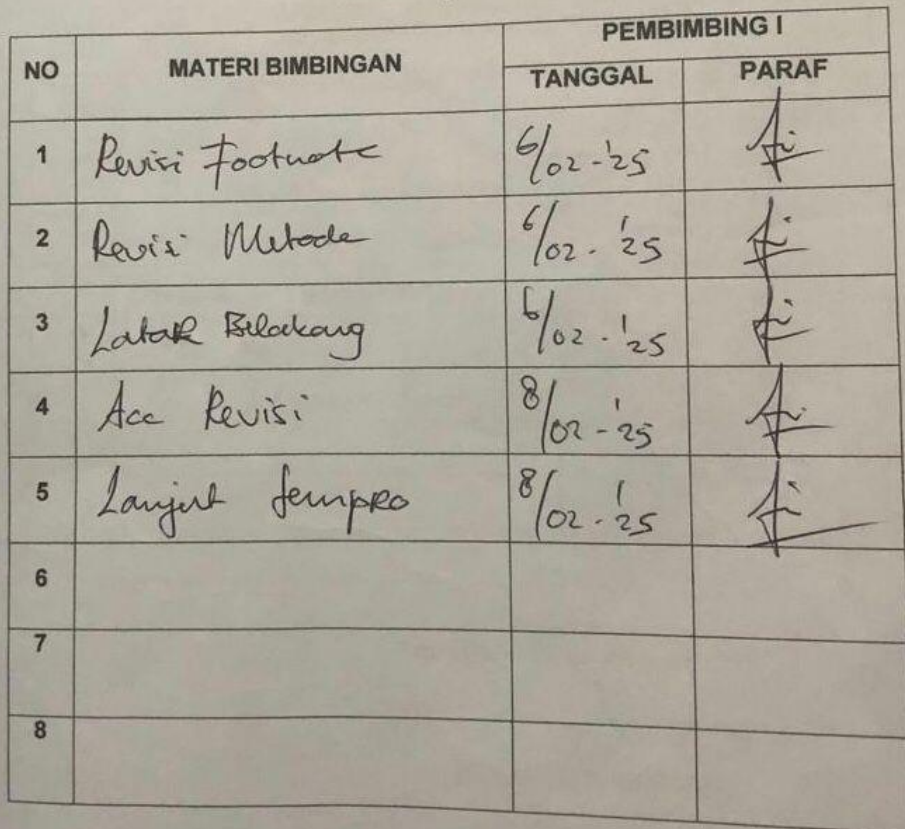 PEMBIMBING I
NO MATERI BIMBINGAN TANGGAL PARAF
1 Revisi Footnote 6/02-'25
2 Revisi Metode 6/02-'25
3 Latar Belakang 6/02-'25
4 Acc Revisi 8/02-'25
5 Lanjut Sempro 8/02-'25
6
7
8